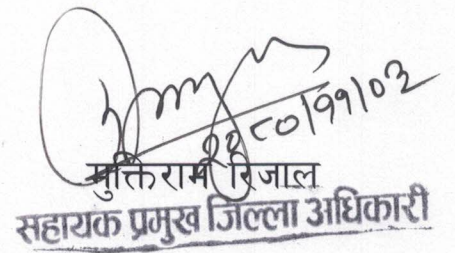 २०८०/११/०३
मुक्तिराम रिजाल
सहायक प्रमुख जिल्ला अधिकारी